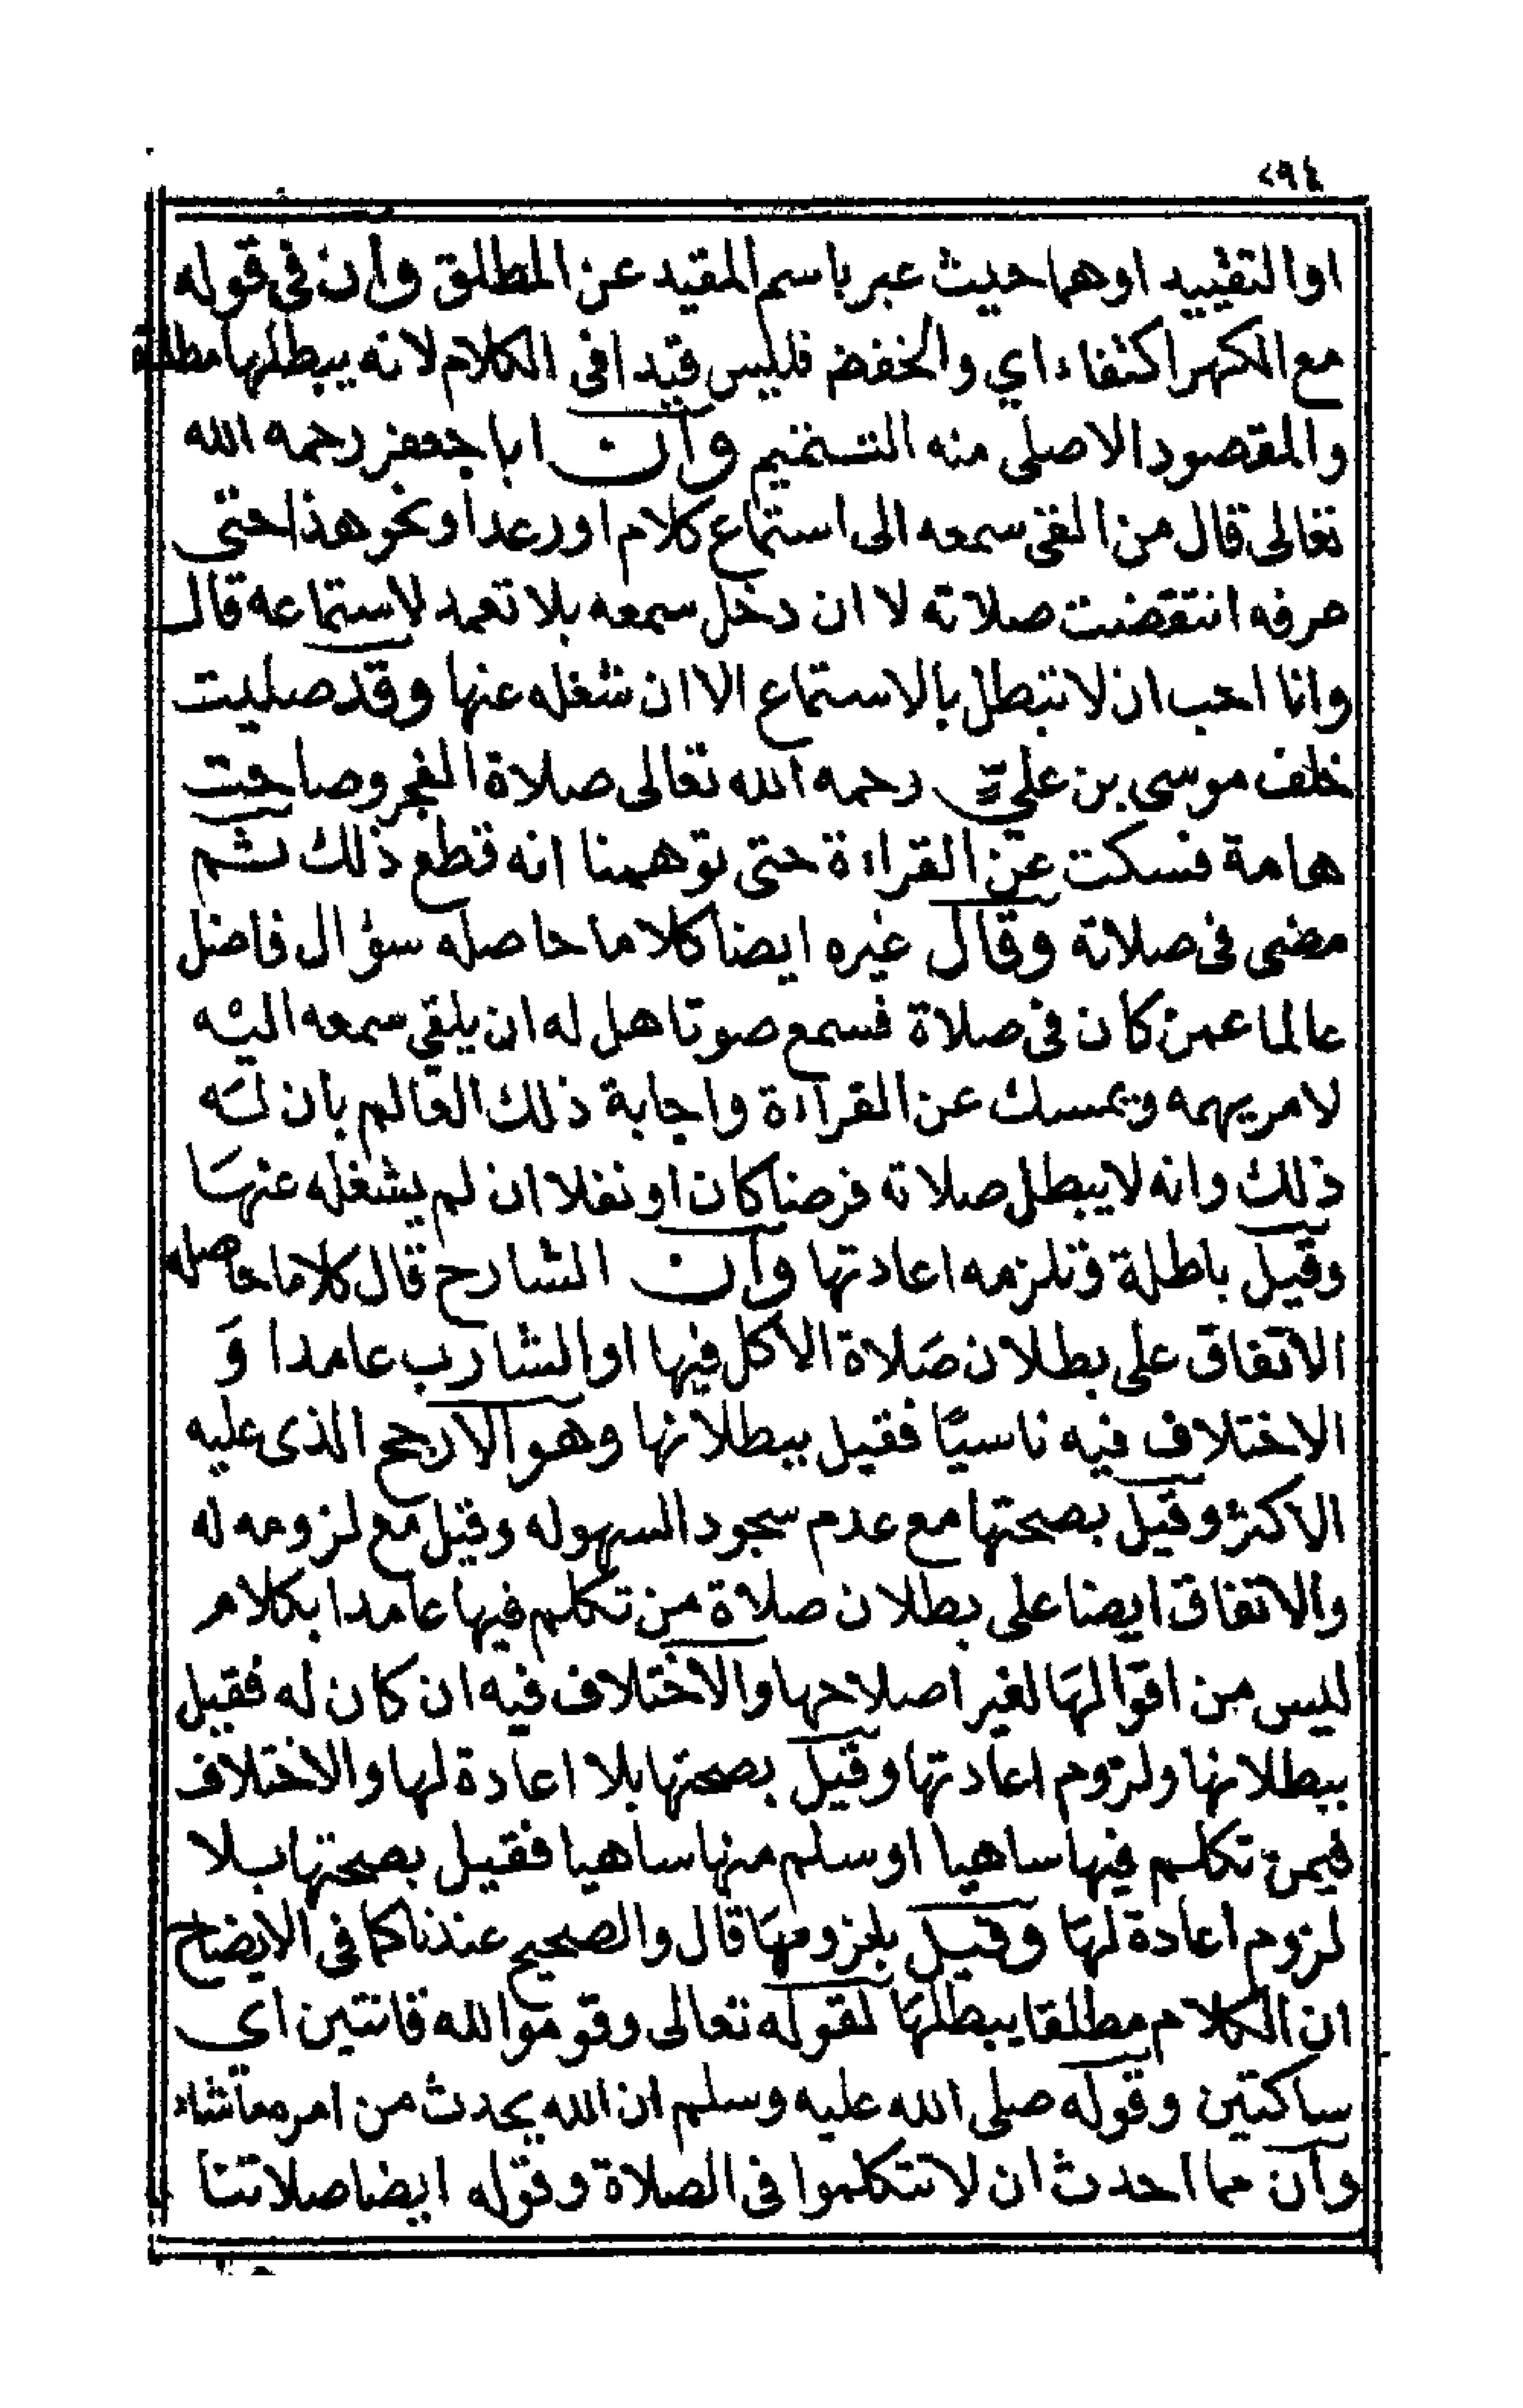 ٢٩٤
او التقييد اوهما حيث عبر باسم المقيد عن المطلق وان في قوله
مع الكهر اكتفاء اي والخفض فليس قيدا في الكلام لانه يبطلها مطلقا
والمقصود الاصلي منه التتميم وان ابا جعفر رحمه الله
تعالى قال من القى سمعه الى استماع كلام او رعد او نحو هذا حتى
عرفه انتقضت صلاته لا ان دخل سمعه بلا تعمد لاستماعه قال
وانا احب ان لا تبطل بالاستماع الا ان شغله عنها وقد صليت
خلف موسى بن علي رحمه الله تعالى صلاة الفجر وصاحت
هامة فسكت عن القراءة حتى توهمنا انه قطع ذلك ثم
مضى في صلاته وقال غيره ايضا كلاما حاصله سؤال فاضل
عالما عمن كان في صلاة فسمع صوتا هل له ان يلقي سمعه اليه
لامر يهمه ويمسك عن القراءة واجابة ذلك العالم بان له
ذلك وانه لا يبطل صلاته فرضا كان او نفلا ان لم يشغله عنها
وقيل باطلة وتلزمه اعادتها وان الشارح قال كلاما حاصله
الاتفاق على بطلان صَلاة الاكل فيها او الشارب عامدا وَ
الاختلاف فيه ناسيًا فقيل ببطلانها وهو الارجح الذى عليه
الاكثر وقيل بصحتها مع عدم سجود السهو له وقيل مع لزومه له
والاتفاق ايضا على بطلان صلاة من تكلم فيها عامدا بكلام
ليس من اقوالهَا لغير اصلاحها والاختلاف فيه ان كان له فقيل
ببطلانها ولزوم اعادتها وقيل بصحتها بلا اعادة لها والاختلاف
فيمن تكلم فيها ساهيا او سلم منها ساهيا فقيل بصحتها بلا
لزوم اعادة لهَا وقيل بلزومهَا قال والصحيح عندنا كما في الايضاح
ان الكلام مطلقا يبطلهَا لقوله تعالى وقوموا لله قانتين اي
ساكتين وقوله صلى الله عليه وسلم ان الله يحدث من امره ما شاء
وان مما احدث ان لا تتكلموا في الصلاة وقوله ايضا صلاتنا